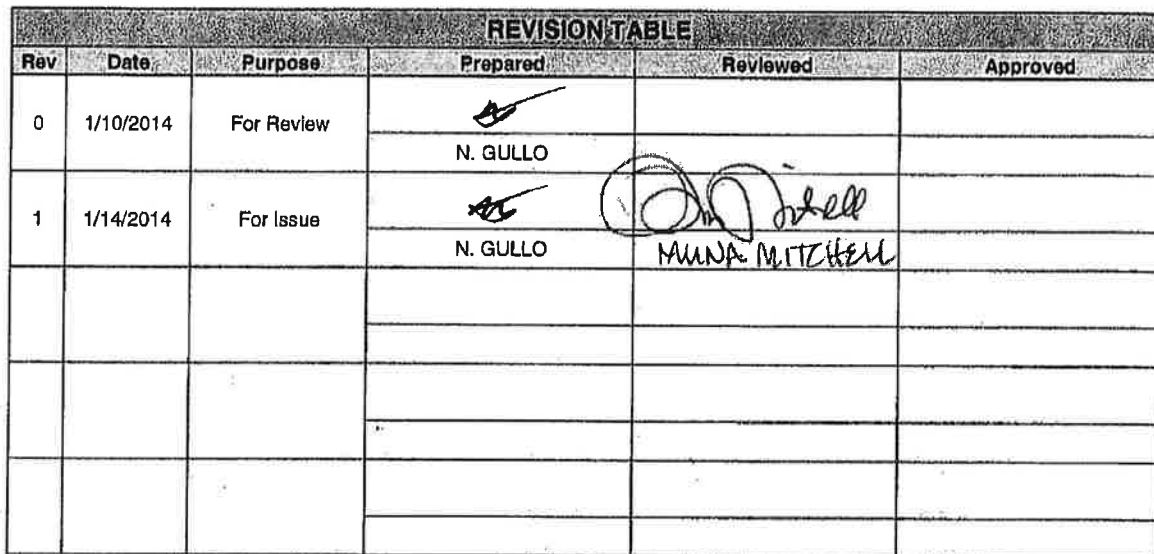 REVISION TABLE
Rev Date Purpose Prepared Reviewed Approved
0 1/10/2014 For Review
N. GULLO
1 1/14/2014 For Issue
N. GULLO MUNA MITCHELL